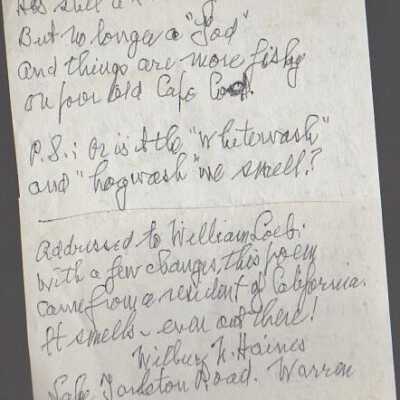 He's still a
But no longer a "God"
And things are more fishy
on poor old Cape Cod.
P.S.: Or is it the "whitewash"
and "hogwash" we smell?
Addressed to William Loeb:
With a few changes, this poem
came from a resident of California.
It smells - even out there!
Wilbur N. Haines
Road. Warren